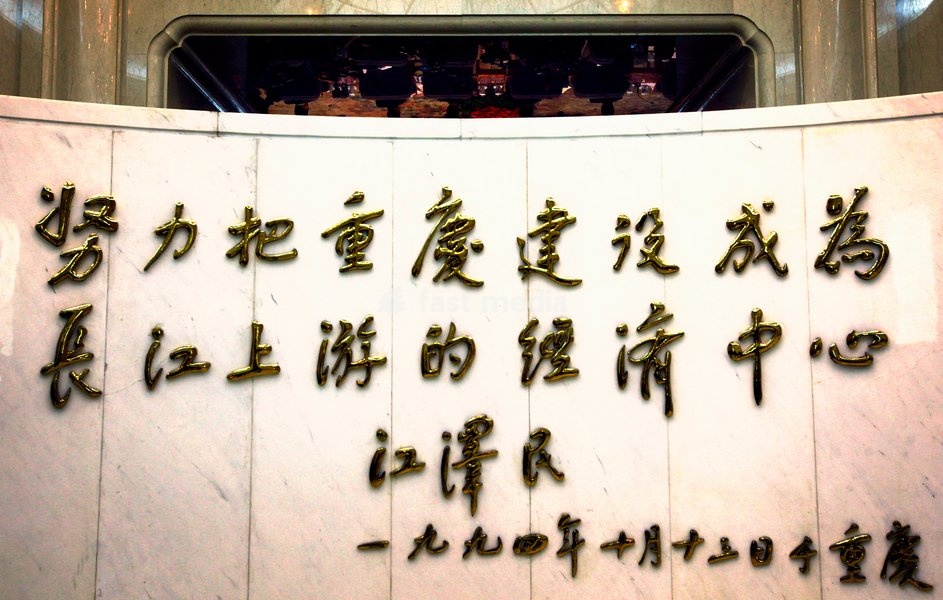 努力把重慶建设成為
長江上游的經濟中心
江澤民
一九九四年十月十三日于重慶
fast media